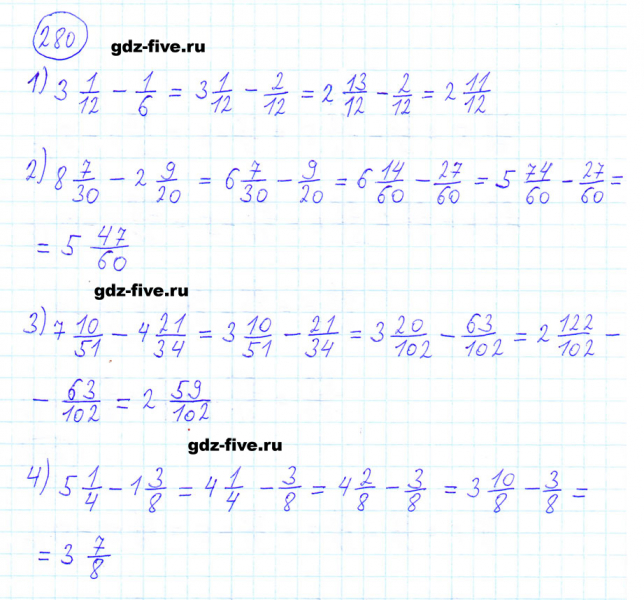 280 gdz-five.ru
1) 3 1/12 − 1/6 = 3 1/12 − 2/12 = 2 13/12 − 2/12 = 2 11/12
2) 8 7/30 − 2 9/20 = 6 7/30 − 9/20 = 6 14/60 − 27/60 = 5 74/60 − 27/60 =
= 5 47/60
gdz-five.ru
3) 7 10/51 − 4 21/34 = 3 10/51 − 21/34 = 3 20/102 − 63/102 = 2 122/102 −
− 63/102 = 2 59/102
gdz-five.ru
4) 5 1/4 − 1 3/8 = 4 1/4 − 3/8 = 4 2/8 − 3/8 = 3 10/8 − 3/8 =
= 3 7/8